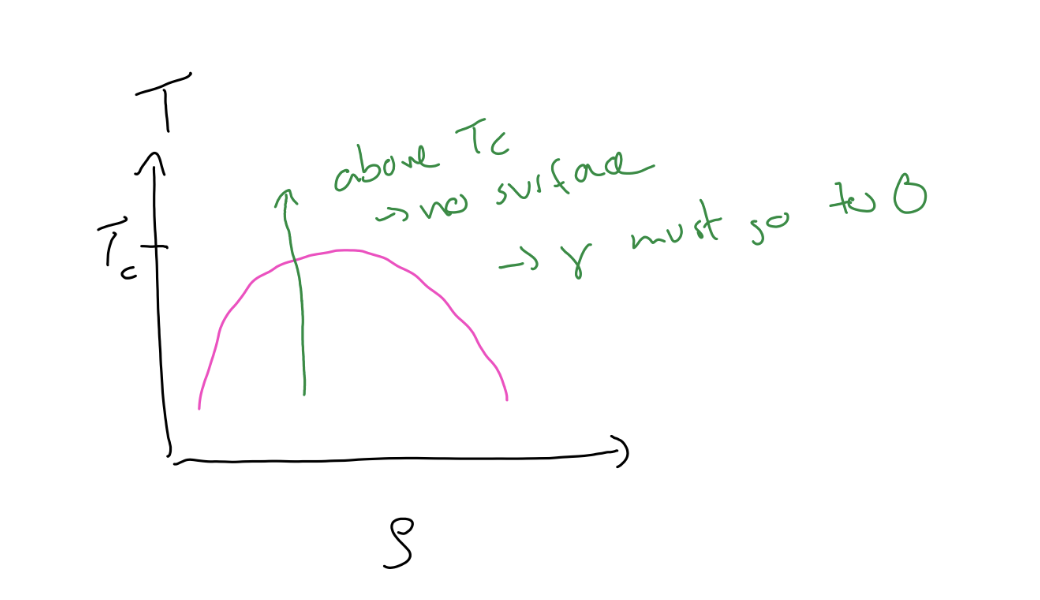 T
above Tc
→ no surface
→ γ must go to 0
Tc
ρ